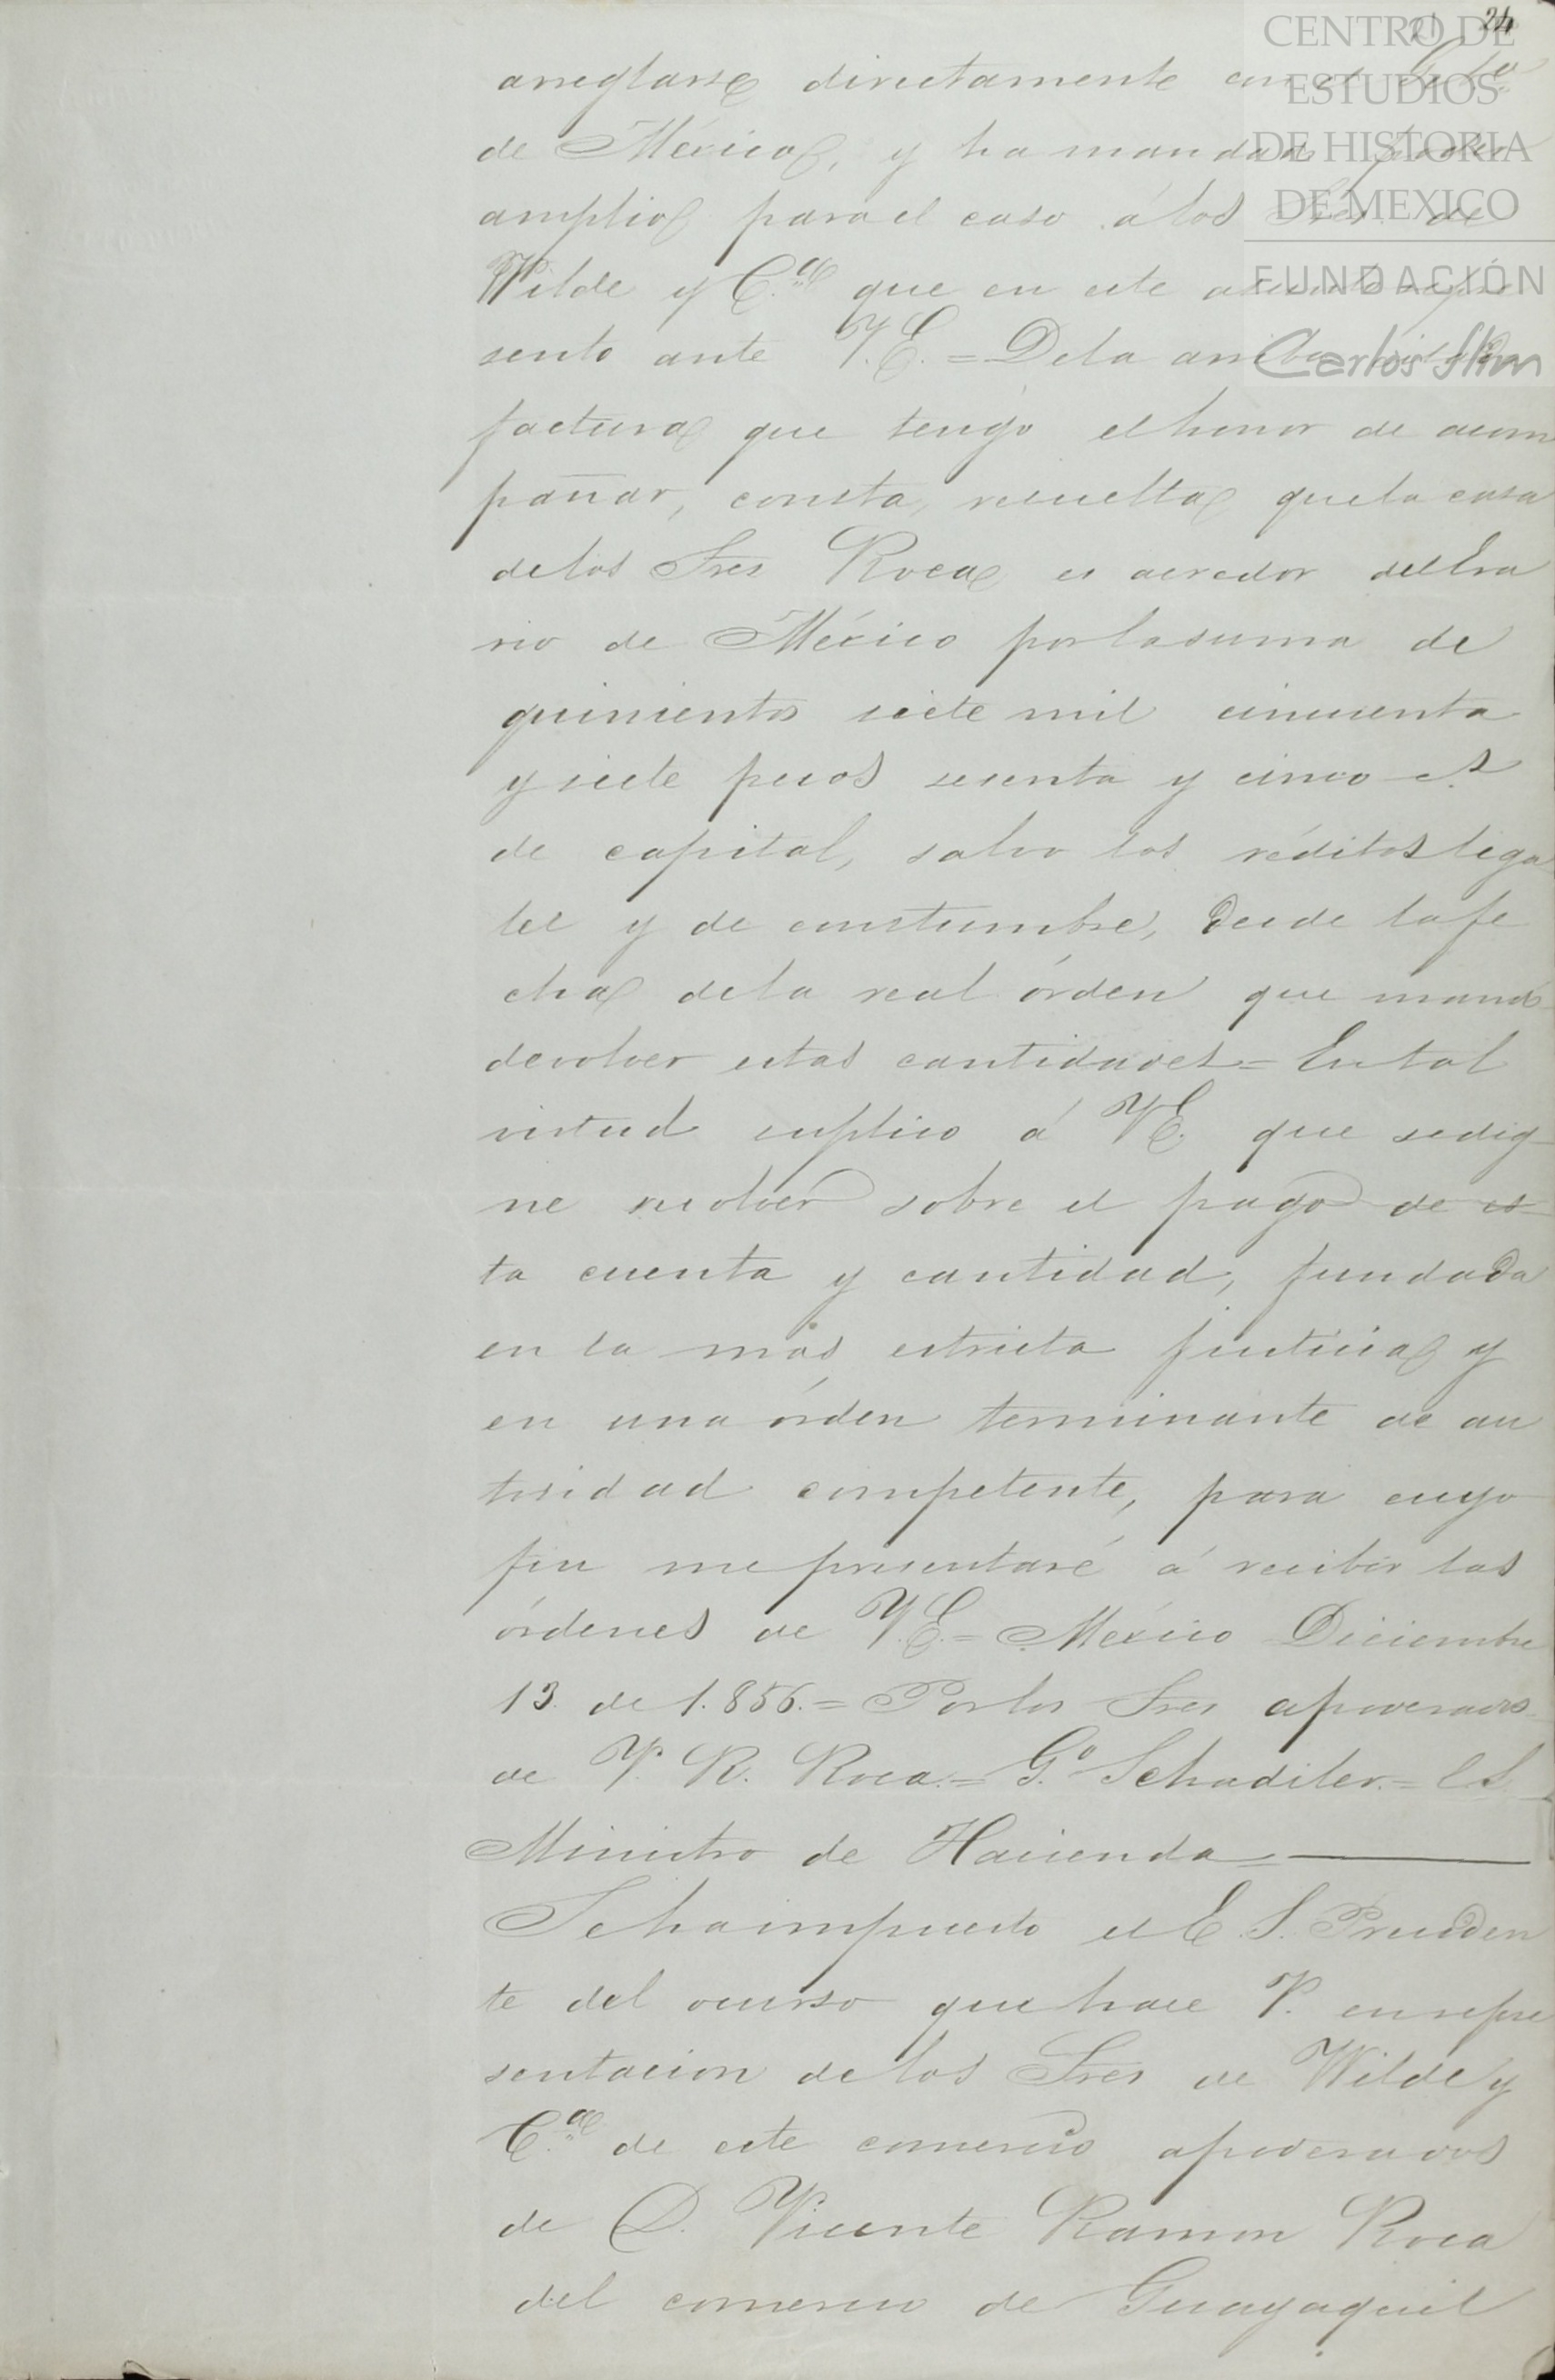 21 24
CENTRO DE
ESTUDIOS
DE HISTORIA
DE MEXICO
FUNDACIÓN
Carlos Slim
arreglarse directamente con
de México, y ha mandado poder
amplio para el caso á los Sres. de
Wilde y C.ª que en este asunto repre
sento ante V.E. = De la arriba
factura que tengo el honor de acom
pañar, consta, resulta que la casa
de los Sres Roca es acredor del Era
rio de México por la suma de
quinientos siete mil cincuenta
y siete pesos sesenta y cinco cs
de capital, salvo los réditos lega
les y de constumbre, desde la fe
cha de la real órden que mandó
devolver estas cantidades = En tal
virtud suplico á V.E. que se dig
ne resolver sobre el pago de es
ta cuenta y cantidad, fundada
en la más estricta justicia y
en una órden terminante de au
toridad competente, para cuyo
fin me presentaré á recibir las
órdenes de V.E. = México Diciembre
13 de 1.856. = Por los Sres apoderados
de V. R. Roca. = G.º Schaditer. = E S
Ministro de Hacienda =
Se ha impuesto el E. S. Presiden
te del ocurso que hace V. en repre
sentacion de los Sres de Wilde y
C.ª de este comercio apoderados
de D. Vicente Ramon Roca
del comercio de Guayaquil